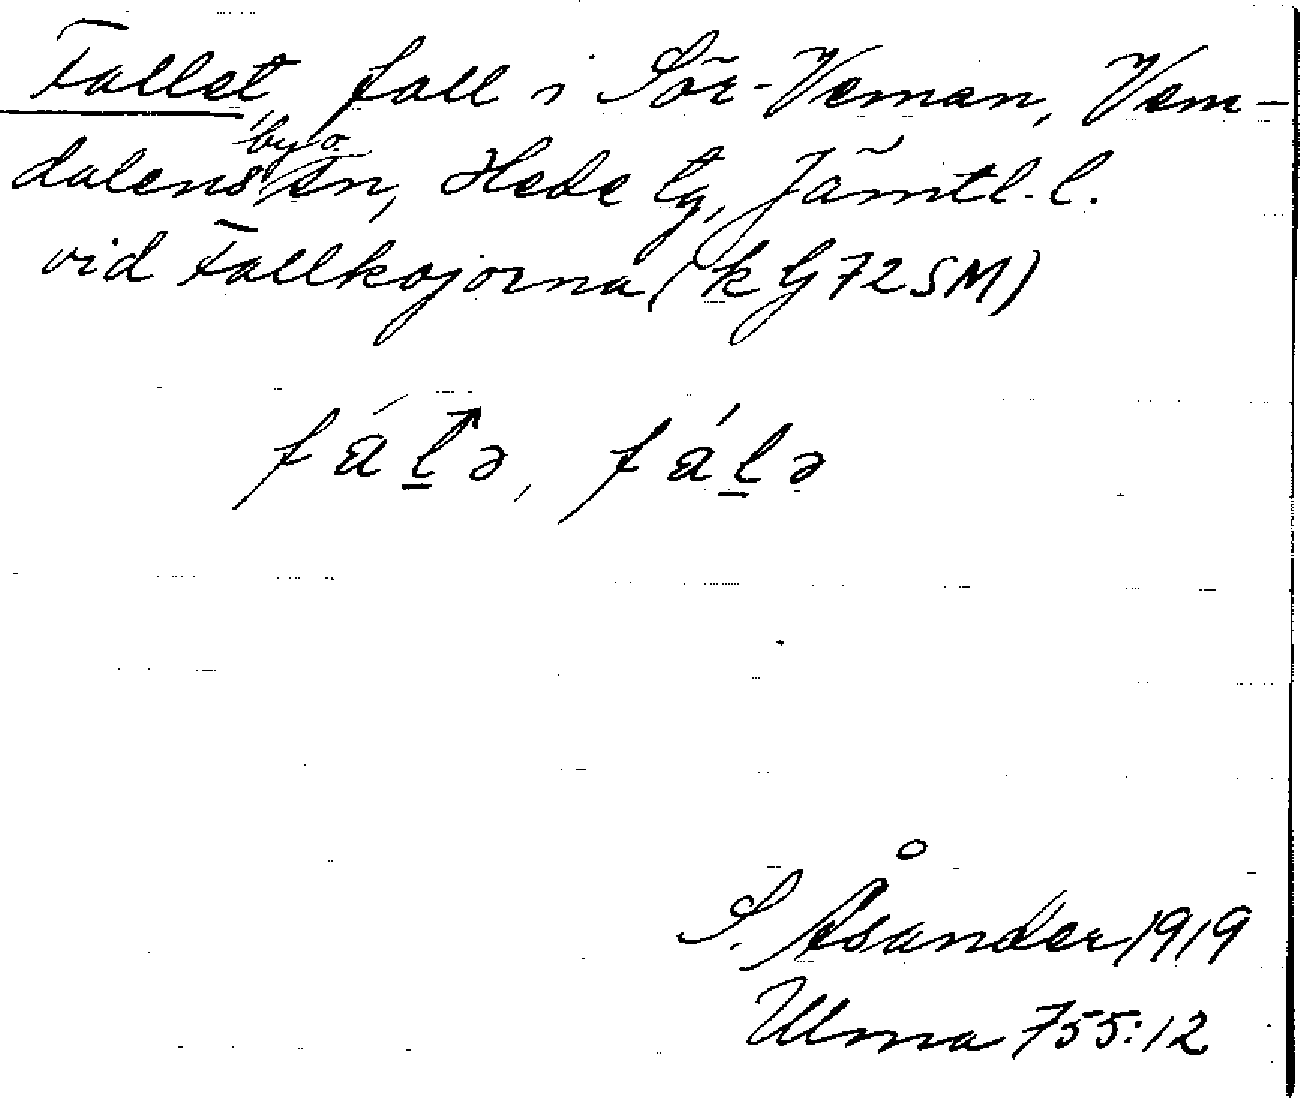 Fallet, fall i Sör-Veman, Vem-
dalens by o. sn, Hede tg, Jämtl. l.
vid Fallkojorna (k G72SM)
fál̠ə, fál̠ə
S. Åsander 1919
Ulma 755:12